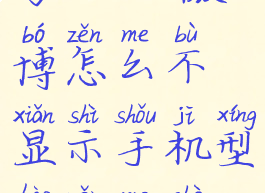 bó zěn me bù
博怎么不
xiǎn shì shǒu jī xíng
显示手机型